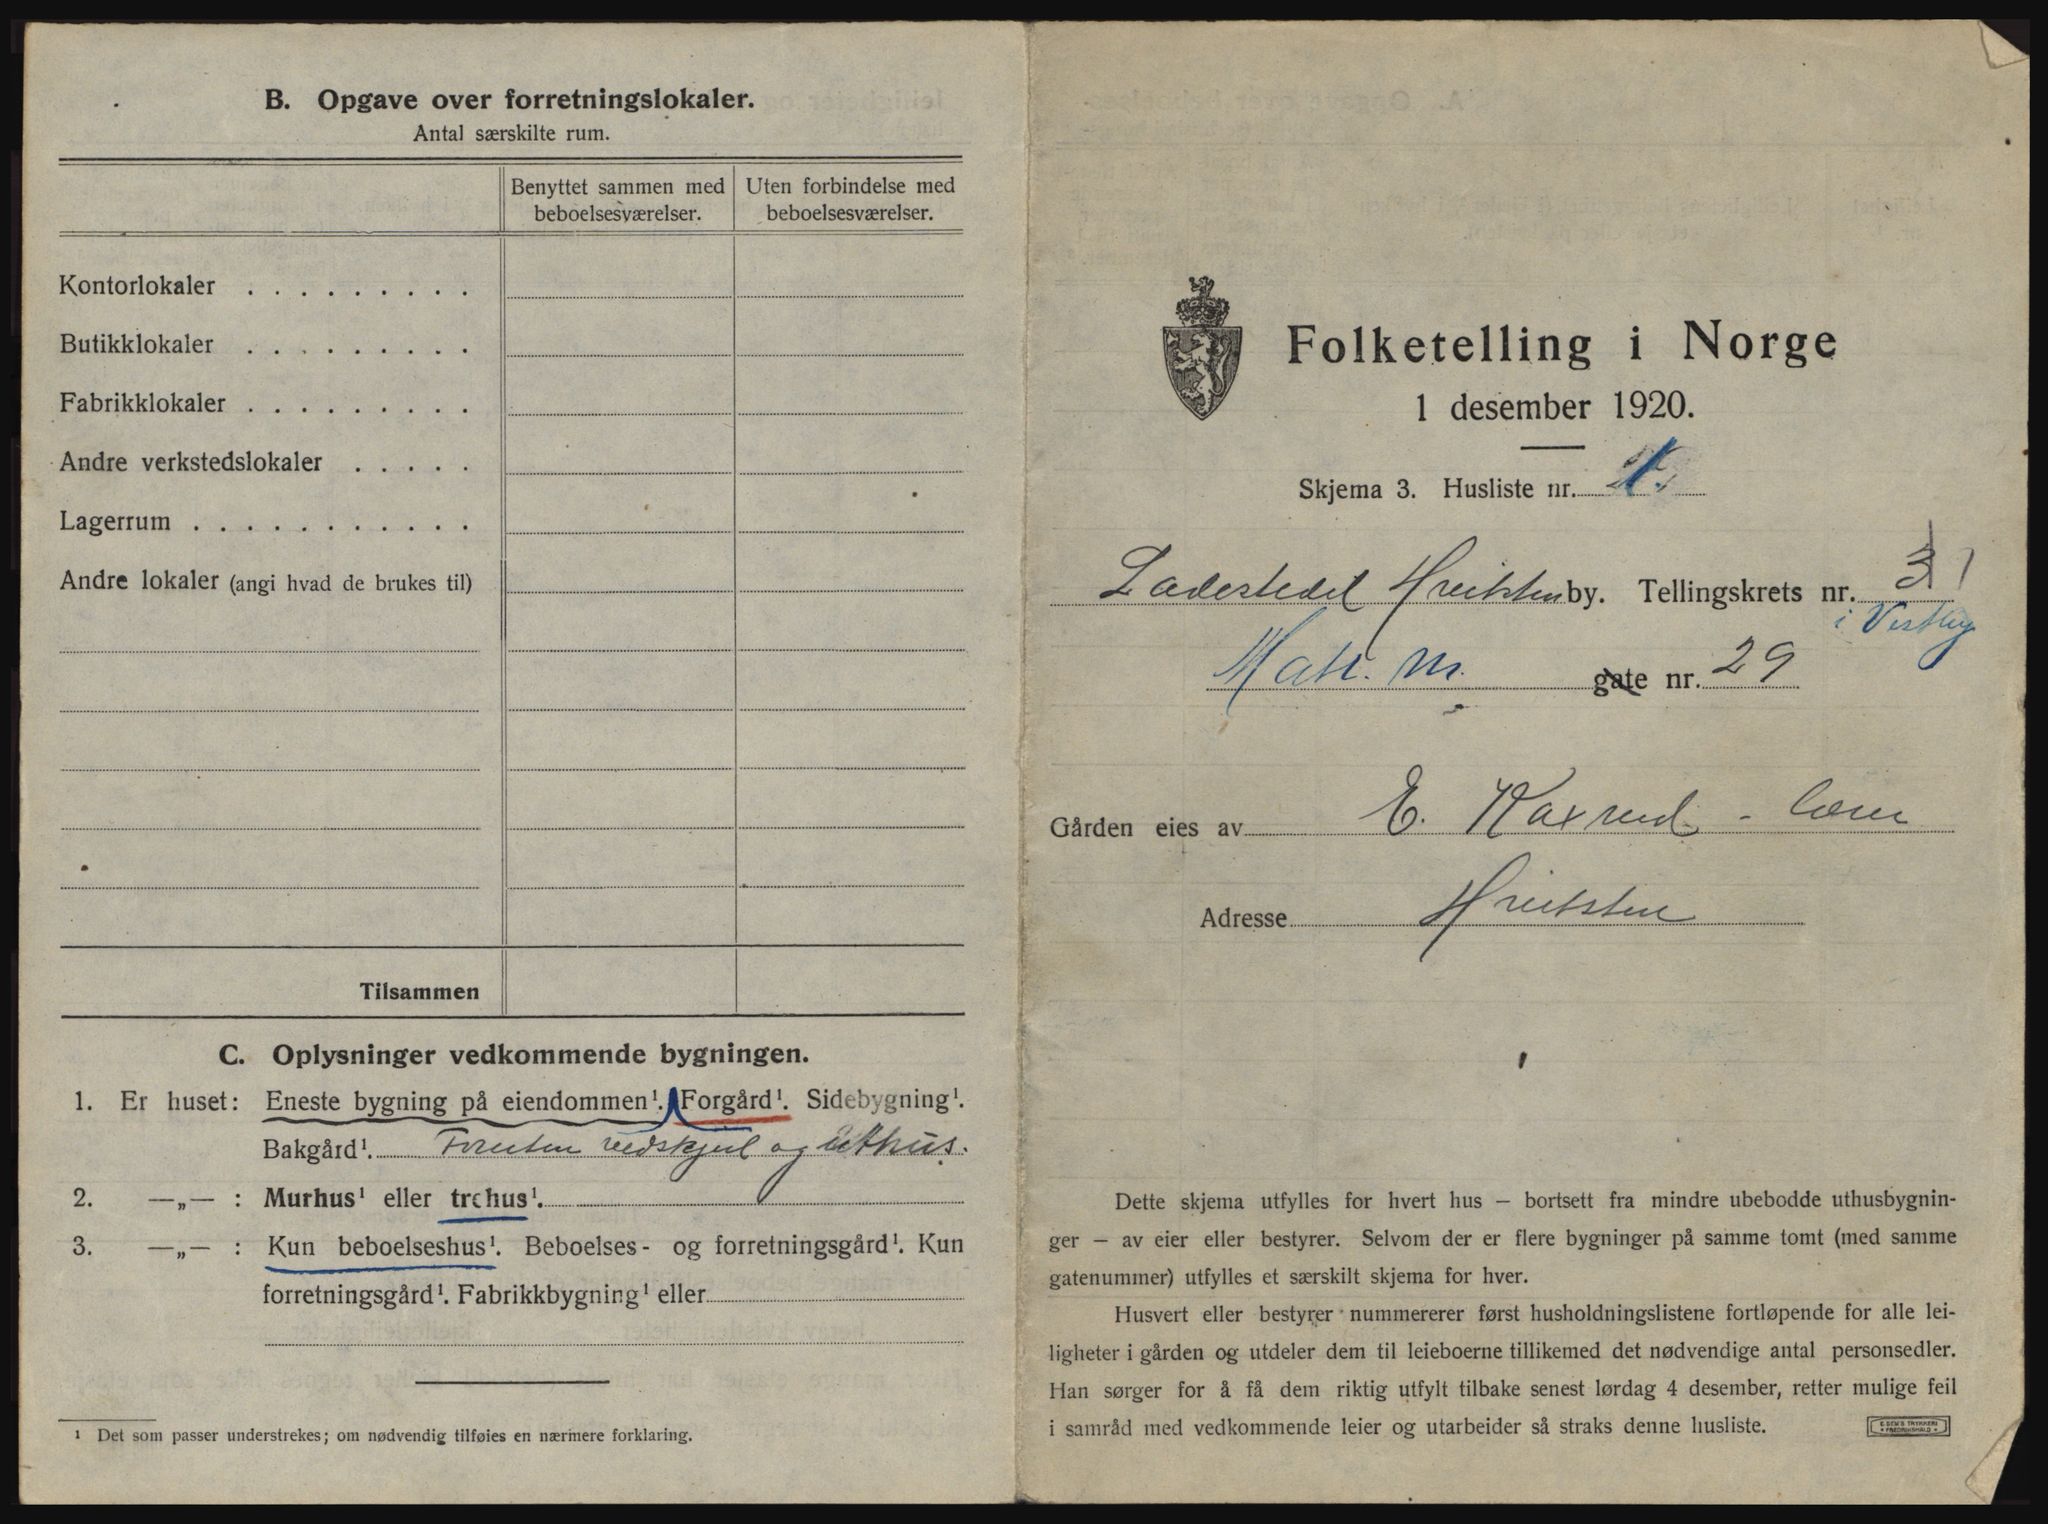 B. Opgave over forretningslokaler.
Antal særskilte rum.
Benyttet sammen med beboelsesværelser.
Uten forbindelse med beboelsesværelser.
Kontorlokaler . . . . . . . . .
Butikklokaler . . . . . . . . .
Fabrikklokaler . . . . . . . . .
Andre verkstedslokaler . . . . .
Lagerrum . . . . . . . . . . .
Andre lokaler (angi hvad de brukes til)
Tilsammen
C. Oplysninger vedkommende bygningen.
1. Er huset: Eneste bygning på eiendommen¹. Forgård¹. Sidebygning¹.
Bakgård¹. Foruten vedskjul og uthus.
2. —„— : Murhus¹ eller trehus¹.
3. —„— : Kun beboelseshus¹. Beboelses- og forretningsgård¹. Kun
forretningsgård¹. Fabrikkbygning¹ eller
¹ Det som passer understrekes; om nødvendig tilføies en nærmere forklaring.
Folketelling i Norge
1 desember 1920.
Skjema 3. Husliste nr.
Ladestedet Hvitsten by. Tellingskrets nr. 3 1
i Vestby
Matr. nr. gate nr. 29
Gården eies av E. Kaxrud
Adresse Hvitsten
Dette skjema utfylles for hvert hus — bortsett fra mindre ubebodde uthusbygnin-
ger — av eier eller bestyrer. Selvom der er flere bygninger på samme tomt (med samme
gatenummer) utfylles et særskilt skjema for hver.
Husvert eller bestyrer nummererer først husholdningslistene fortløpende for alle lei-
ligheter i gården og utdeler dem til leieboerne tillikemed det nødvendige antal personsedler.
Han sørger for å få dem riktig utfylt tilbake senest lørdag 4 desember, retter mulige feil
i samråd med vedkommende leier og utarbeider så straks denne husliste.
E. SEM'S TRYKKERI
• FREDRIKSHALD •